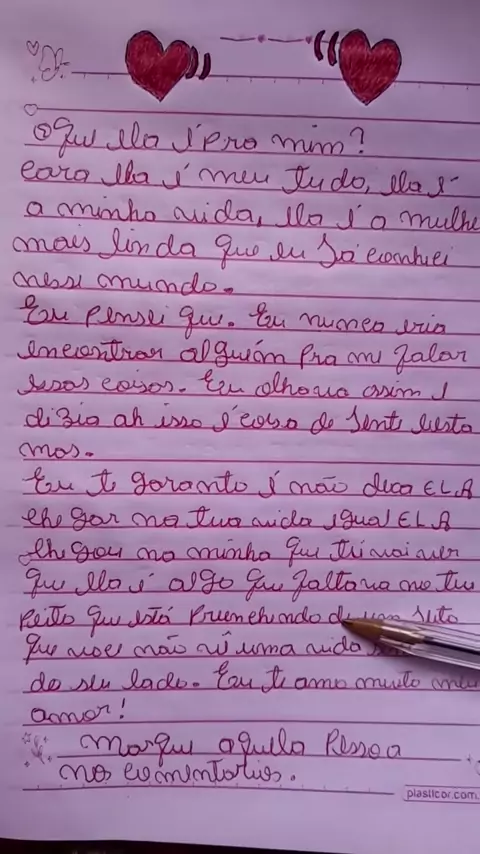 O que ela é pro mim?
cara ela é meu tudo, ela é
a minha vida, ela é a mulhe
mais linda que eu já conheci
nesse mundo.
Eu pensei que. Eu nunca iria
encontrar alguém pra me falar
essas coisas. Eu olhava assim e
dizia ah isso é coisa de gente
mas.
Eu te garanto é não deca ELA
chegar na tua vida igual ELA
chegou na minha que tu vai ver
que ela é algo que faltava no teu
peito que está preenchendo de um jeito
que voce não vê uma vida
do seu lado. Eu te amo muito meu
amor!
Marque aquela Pessoa
nos comentarios.
plasticor.com